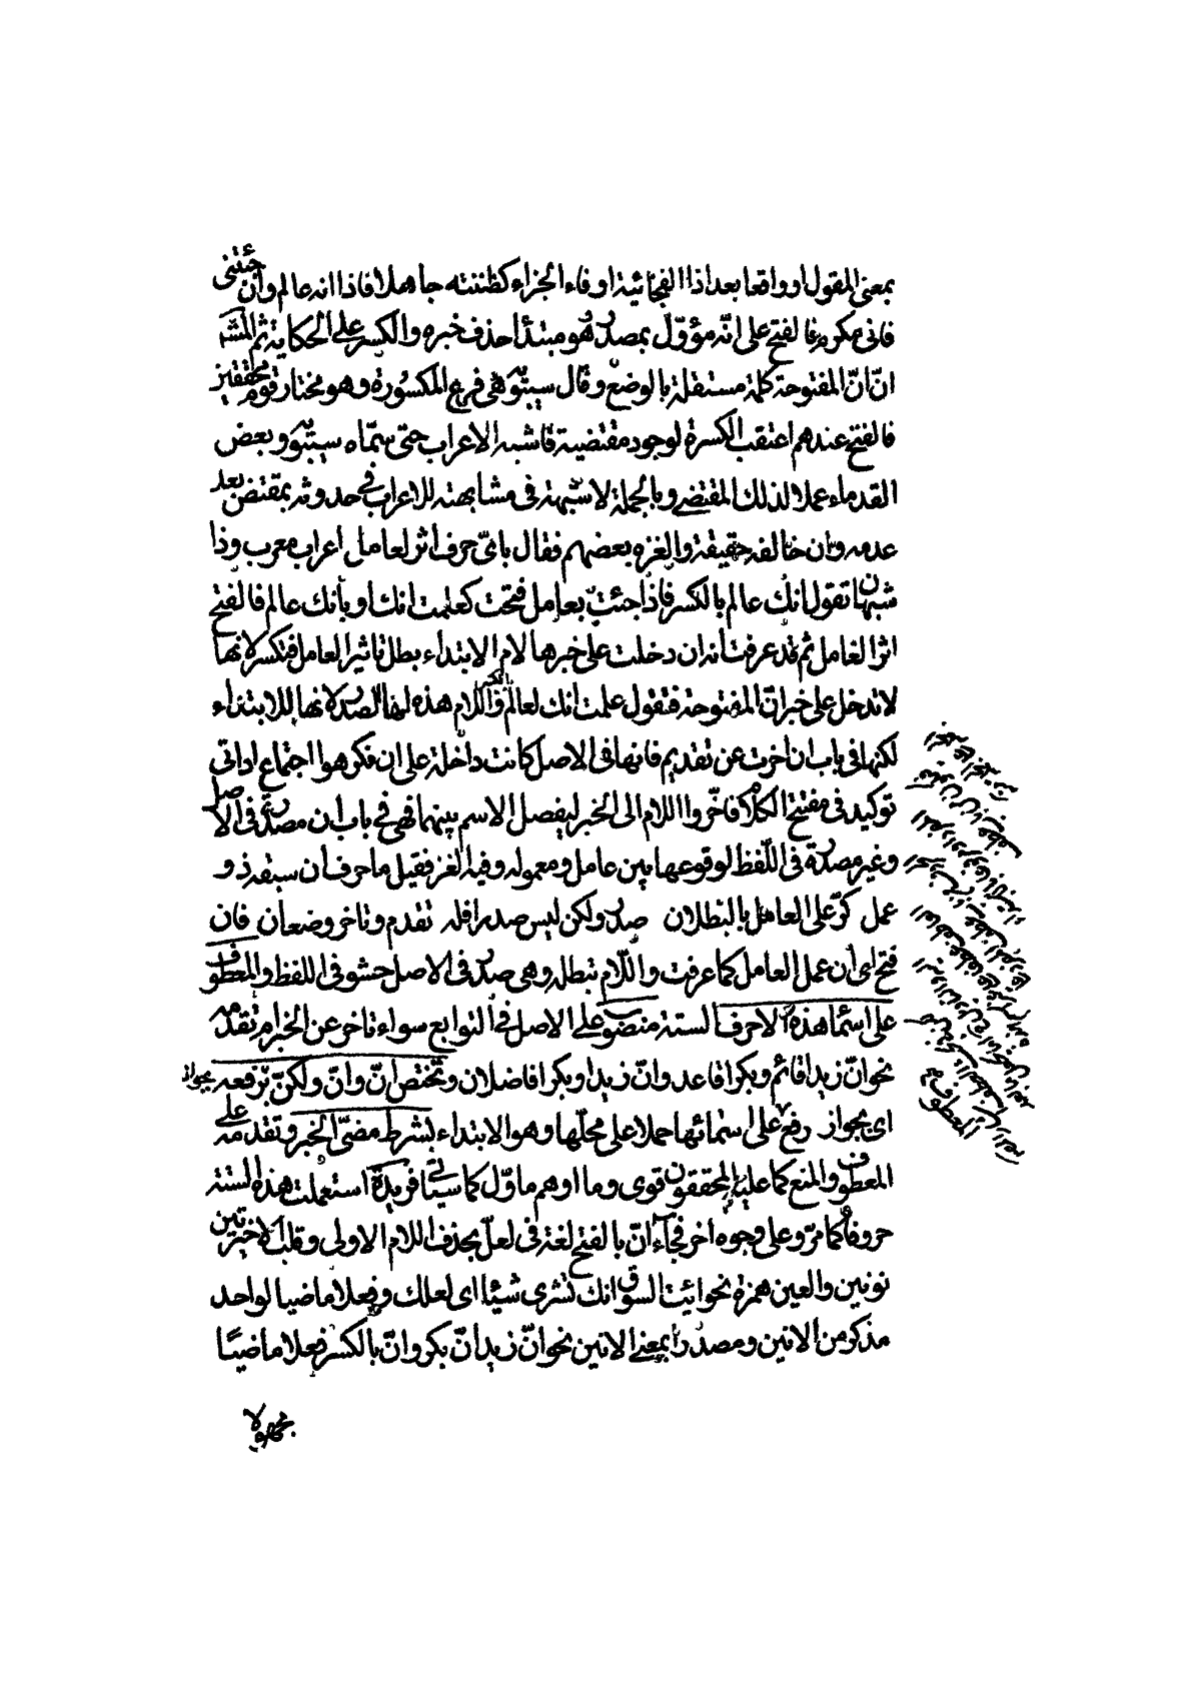 بمعنى المقول او واقعا بعد اذا الفجائية او فاء الجزاء كظننته جاهلا فاذا انه عالم وان جئتنى
فانى مكرم فالفتح على انه مؤوّل بمصدر هو مبتدأ حذف خبره والكسر على الحكاية ثم المشهور
انّ انّ المفتوحة كلمة مستقلة بالوضع وقال سيبويه هى فرع المكسورة وهو مختار قوم محققين
فالفتح عندهم اعتقب الكسرة لوجود مقتضيه فاشبه الاعراب حتى سمّاه سيبويه وبعض
القدماء عملا لذلك المقتضى وبالجملة لا شبهة فى مشابهته للاعراب فى حدوثه بمقتض بعد
عدمه وان خالفه حقيقة والغزه بعضهم فقال باىّ حرف اثر لعامل اعراب معرب وذا
شبهان تقول انك عالم بالكسر فاذا جئت بعامل فتحت كعلمت انك او بأنك عالم فالفتح
اثر العامل ثم قد عرفت انه ان دخلت على خبرها لام الابتداء بطل تاثير العامل فتكسر لانها
لا تدخل على خبر انّ المفتوحة فتقول علمت انك لعالم واللام هذه لها الصدر لانها للابتداء
لكنها فى باب ان اخرت عن تقديم فانها فى الاصل كانت داخلة على ان فكرهوا اجتماع اداتى
توكيد فى مفتتح الكلام فاخّروا اللام الى الخبر ليفصل الاسم بينهما فهى فى باب ان مصدرة فى الاصل
وغير مصدرة فى اللفظ لوقوعها بين عامل ومعموله وفيه الغز فقيل ما حرف ان سبقه ذو
عمل كرّ على العامل بالبطلان صدر ولكن ليس صدرا فله تقدم وتاخر وضعان فان
فتح اى ان عمل العامل كما عرفت واللام تبطله وهى صدر فى الاصل حشو فى اللفظ والمعطوف
على اسماء هذه الاحرف الستة منصوب على الاصل فى التوابع سواء تاخر عن الخبر ام تقدمه
نحو انّ زيدا قائم وبكرا قاعد وانّ زيدا وبكرا فاضلان وتختص انّ وانّ ولكنّ برفعه بجواز
اى بجواز رفع على اسمائها حملا على محلّها وهو الابتداء بشرط مضىّ الخبر وتقدمه على
المعطوف والمنع كما عليه المحققون قوى وما اوهم ماوّل كما سياتى فريدة استعملت هذه الستة
حروفا كما مرّ وعلى وجوه اخر فجاء انّ بالفتح لغة فى لعلّ بحذف اللام الاولى وقلب الاخيرتين
نونين والعين همزة نحو ائيت السوق انك تشرى شيئا اى لعلك وفعلا ماضيا لواحد
مذكر من الانين ومصدرا بمعنى الانين نحو انّ زيد انّ بكر وانّ بالكسر فعلا ماضيا
مجهولا